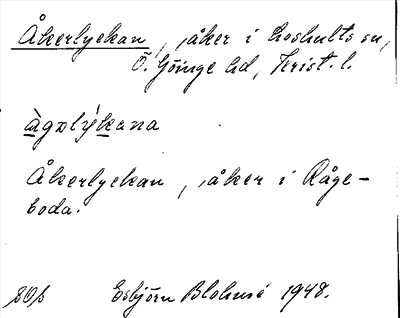 Åkerlyckan, åker i Loshults sn,
Ö. Göinge hd, Krist. l.
àgɔlýkana
Åkerlyckan, åker i Råge-
boda.
Esbjörn Blohmé 1948.